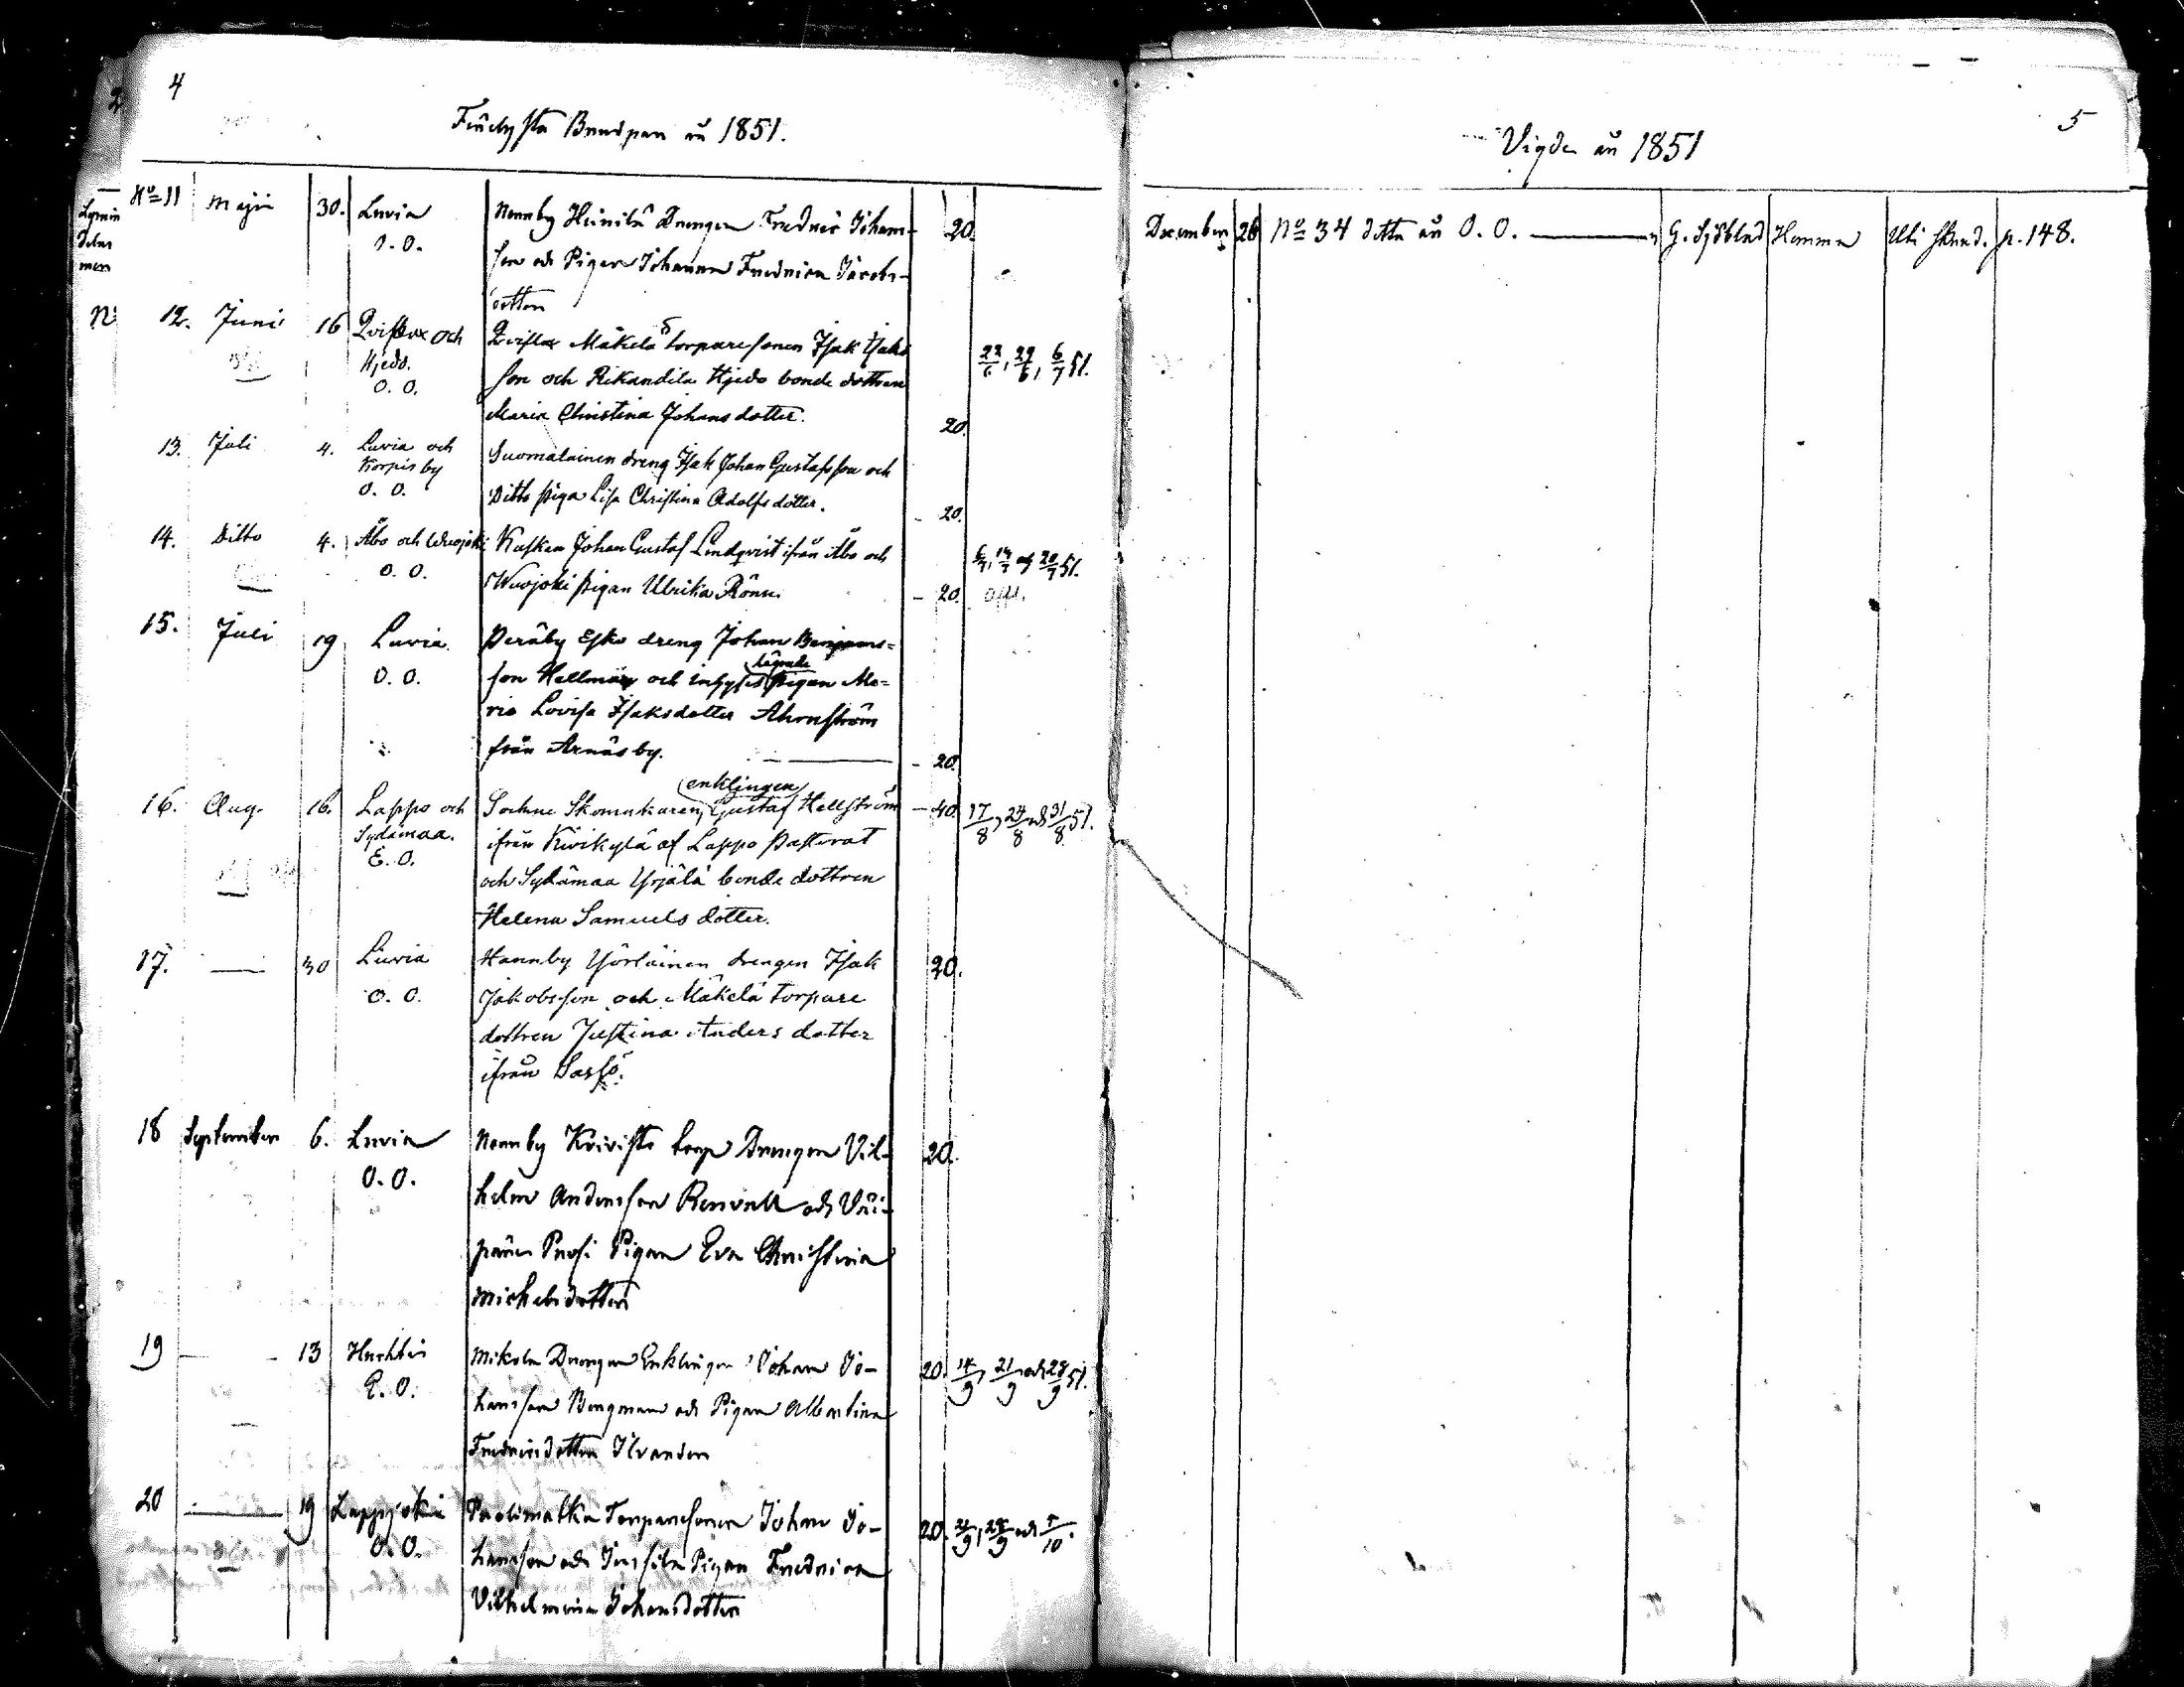 4
Brudpar år 1851.
No 11 Maji 30. Luvia
O. O.
Nannby Heinilä Drengen Fredric Johans-
son och Pigan Johanna Fredrica Jacobs-
dotter
20.
N: 12. Juni 16 och
Hjedo.
O. O.
Mäkelä torparesonen Isak Isaks
son och Rikandila Hjedo bonde dottren
Maria Christina Johansdotter.
20.
22/6, 29/6, 6/7 51.
13. Juli 4. Luvia och
Korpis by
O. O.
Suomalainen dreng Isak Johan Gustafsson och
Ditto piga Lisa Christina Adolfs dotter.
- 20.
14. Ditto 4. Åbo och Wuojoki
O. O.
Johan Gustaf Lindqvist ifrån Åbo och
Wuojoki pigan Ulrika Rönn.
- 20.
6/7, 13/7 och 20/7 51.
15. Juli 19 Luvia.
O. O.
Peräby Esko dreng Johan
son Hellman och inhyses pigan Ma=
ria Lovisa Isaksdotter Ahrnström
från Arnäs by.
- 20.
16. Aug. 16. Lappo och
Sydämaa.
E. O.
enklingen
Sockne Skomakaren, Gustaf Hellström
ifrån Kivikylä af Lappo Pastorat
och Sydämaa Yrjälä bonde dottren
Helena Samuels dotter.
- 40.
17/8, 24/8 och 31/8 51.
17. — 30 Luvia
O. O.
Hannby drengen Isak
Jakobsson och Mäkelä torpare
dottren Justina Anders dotter
ifrån Sassö.
20.
18 September 6. Luvia
O. O.
Nannby Kivisto torp Drengen Vil-
helm Andersson Renvall och
Pigan Eva Christina
Michelsdotter
20.
19 — 13
E. O.
Mikola Drengen Enklingen Johan Jo-
hansson Bergman och Pigan Albertina
Fredricsdotter
20.
14/9, 21/9 och 28/9 51.
20 — 19 Lappijoki
O. O.
Torparesonen Johan Jo-
hansson och Pigan Fredrica
Vilhelmina Johansdotter
20.
21/9, 28/9 och 5/10.
5
Vigde år 1851
December 26 No 34 detta år O. O. — G. Sjöblad Hemma Uti p. 148.